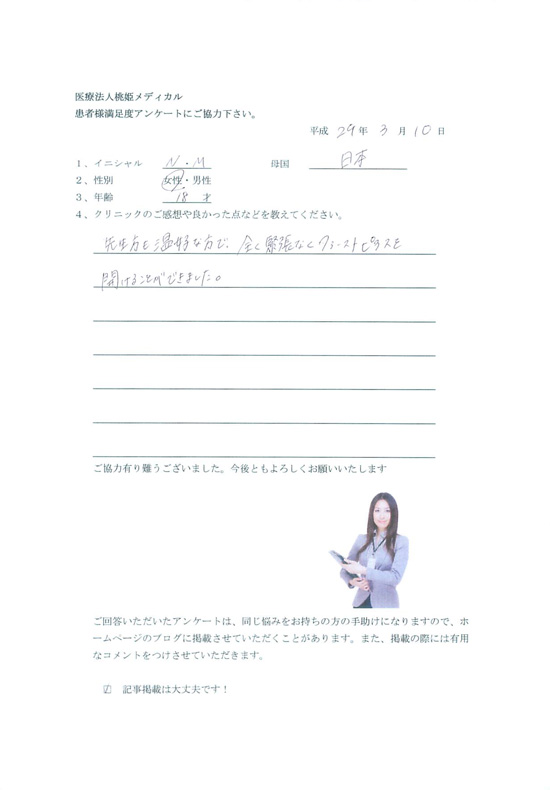 医療法人桃姫メディカル
患者様満足度アンケートにご協力下さい。
平成 29 年 3 月 10 日
1、イニシャル N・M 母国 日本
2、性別 女性・男性
3、年齢 18 才
4、クリニックのご感想や良かった点などを教えてください。
先生方も温好な方で、全く緊張なくファーストピアスを
開けることができました。
ご協力有り難うございました。今後ともよろしくお願いいたします
ご回答いただいたアンケートは、同じ悩みをお持ちの方の手助けになりますので、ホ
ームページのブログに掲載させていただくことがあります。また、掲載の際には有用
なコメントをつけさせていただきます。
☑ 記事掲載は大丈夫です！